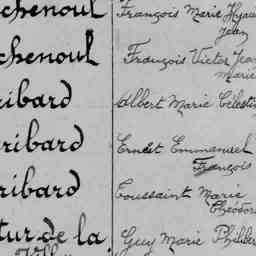 chenoul François Marie Hyac
Jean
chenoul François Victor Jean
Marie
ribard Albert Marie Célestin
ribard Ernest Emmanuel
François
ribard Toussaint Marie
Théodore
tur de la Guy Marie Philiber
Ville